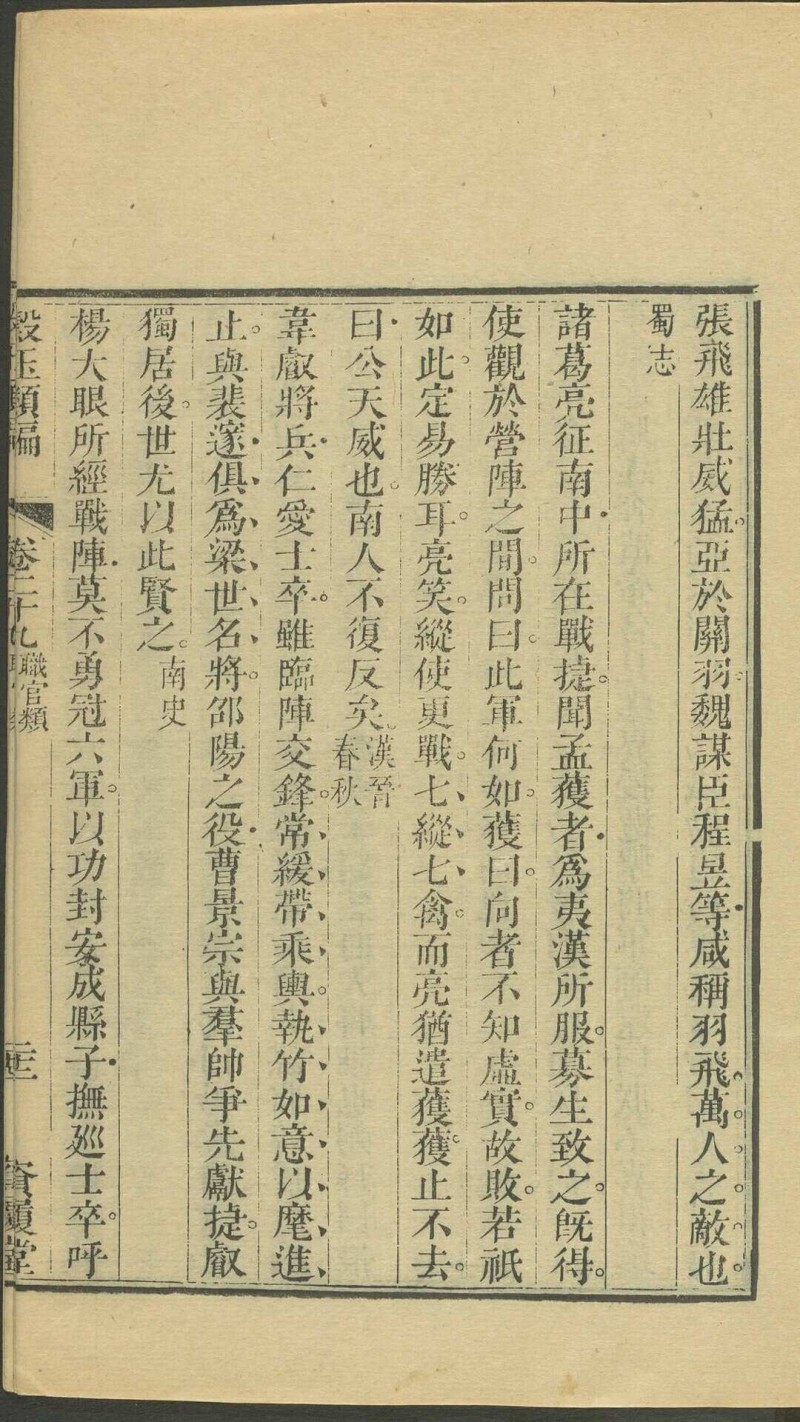 張飛雄壯威猛。亞於關羽。魏謀臣程昱等咸稱羽飛萬人之敵也。
蜀志
諸葛亮征南中。所在戰捷。聞孟獲者爲夷漢所服。募生致之。旣得。
使觀於營陣之間。問曰。此軍何如。獲曰。向者不知虛實。故敗。若祇
如此。定易勝耳。亮笑。縱使更戰。七縱七禽。而亮猶遣獲。獲止不去。
曰。公天威也。南人不復反矣。漢晉
春秋
韋叡將兵。仁愛士卒。雖臨陣交鋒。常緩帶乘輿。執竹如意以麾進
止。與裴邃俱爲梁世名將。邵陽之役。曹景宗與羣帥爭先獻捷。叡
獨居後。世尤以此賢之。南史
楊大眼所經戰陣。莫不勇冠六軍。以功封安成縣子。撫廵士卒。呼
類編
卷二十九職官類